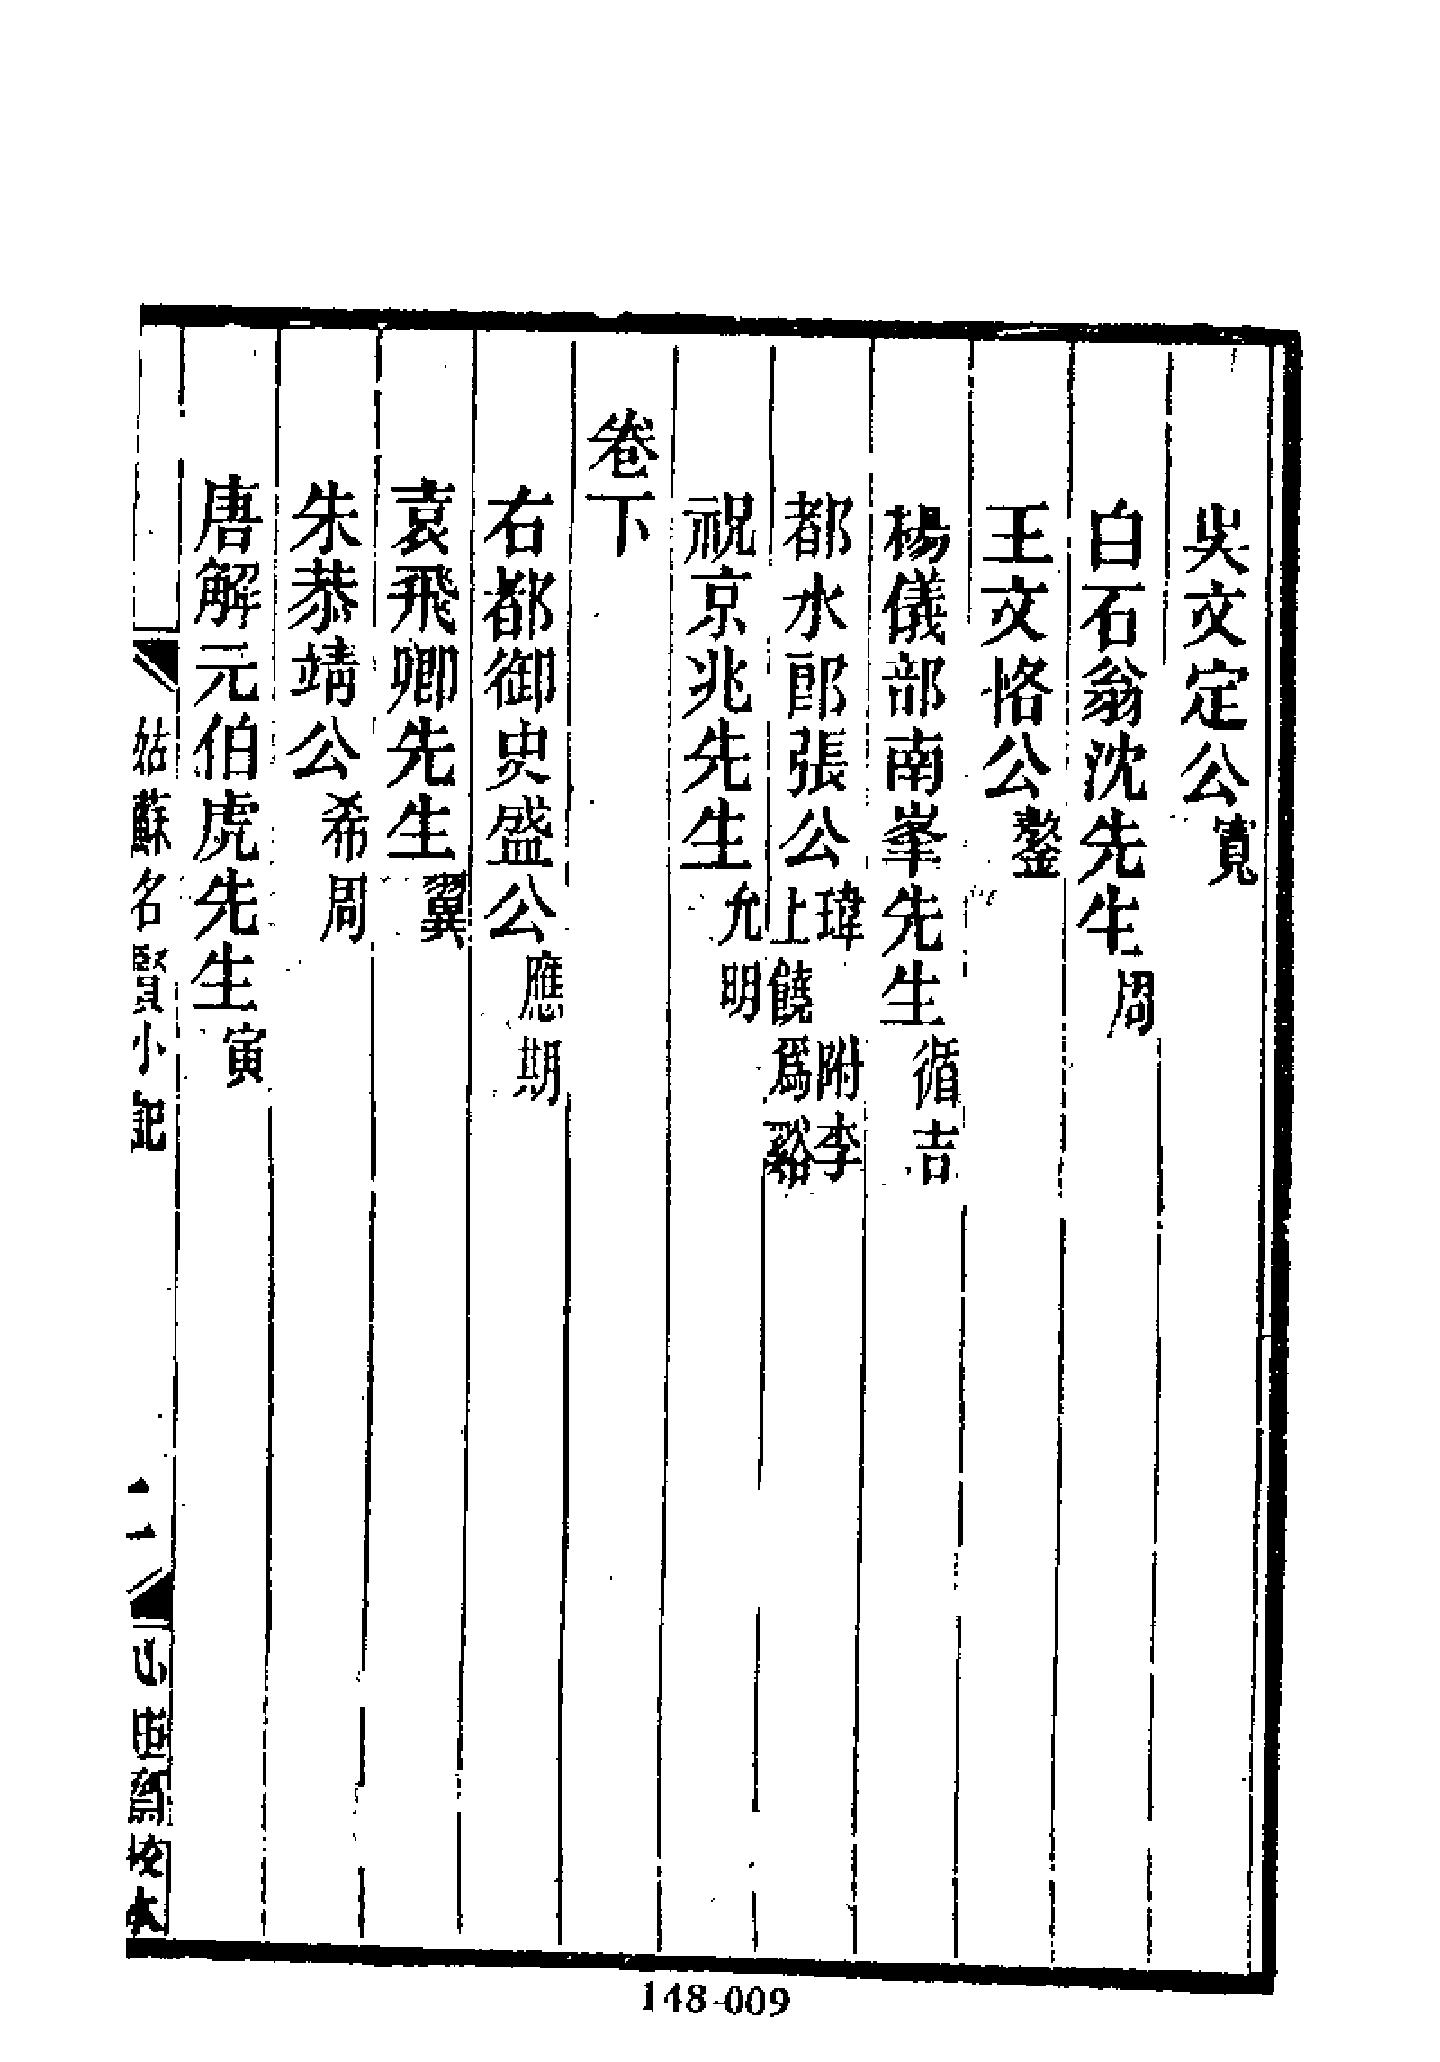 吳文定公寬
白石翁沈先生周
王文恪公鏊
楊儀部南峯先生循吉
都水郎張公瑋 附李
上饒爲谿
祝京兆先生允明
卷下
右都御史盛公應期
袁飛卿先生翼
朱恭靖公希周
唐解元伯虎先生寅
姑蘇名賢小記
二
校本
148-009